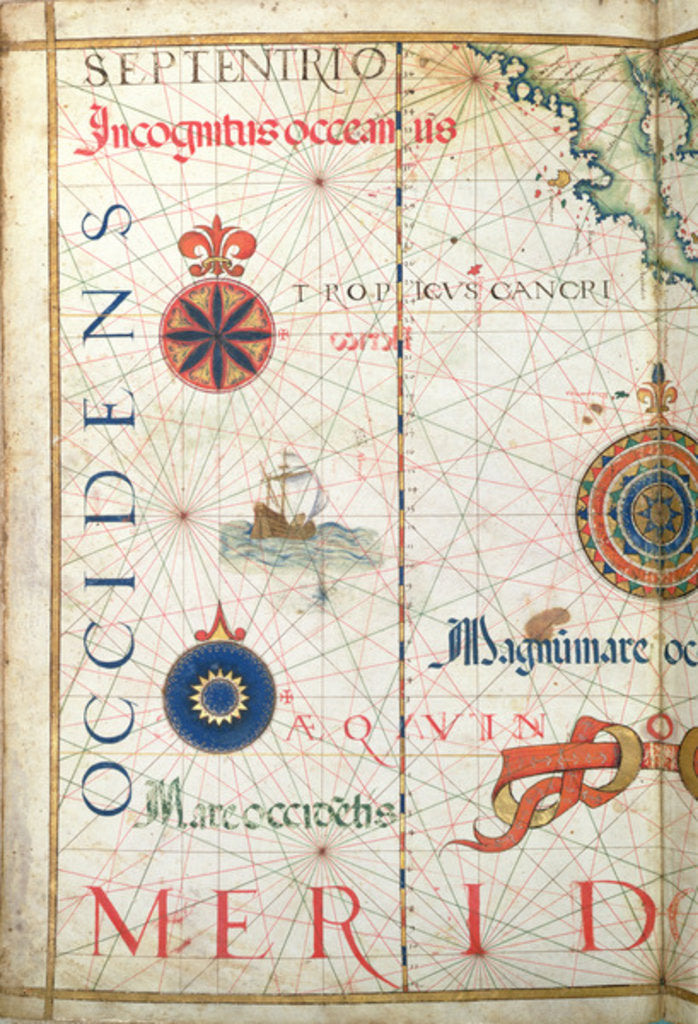 SEPTENTRIO
Incognitus occeanus
OCCIDENS
TROPICVS CANCRI
Magnũ mare oc
ÆQVIN O
Mare occidẽtis
MERID